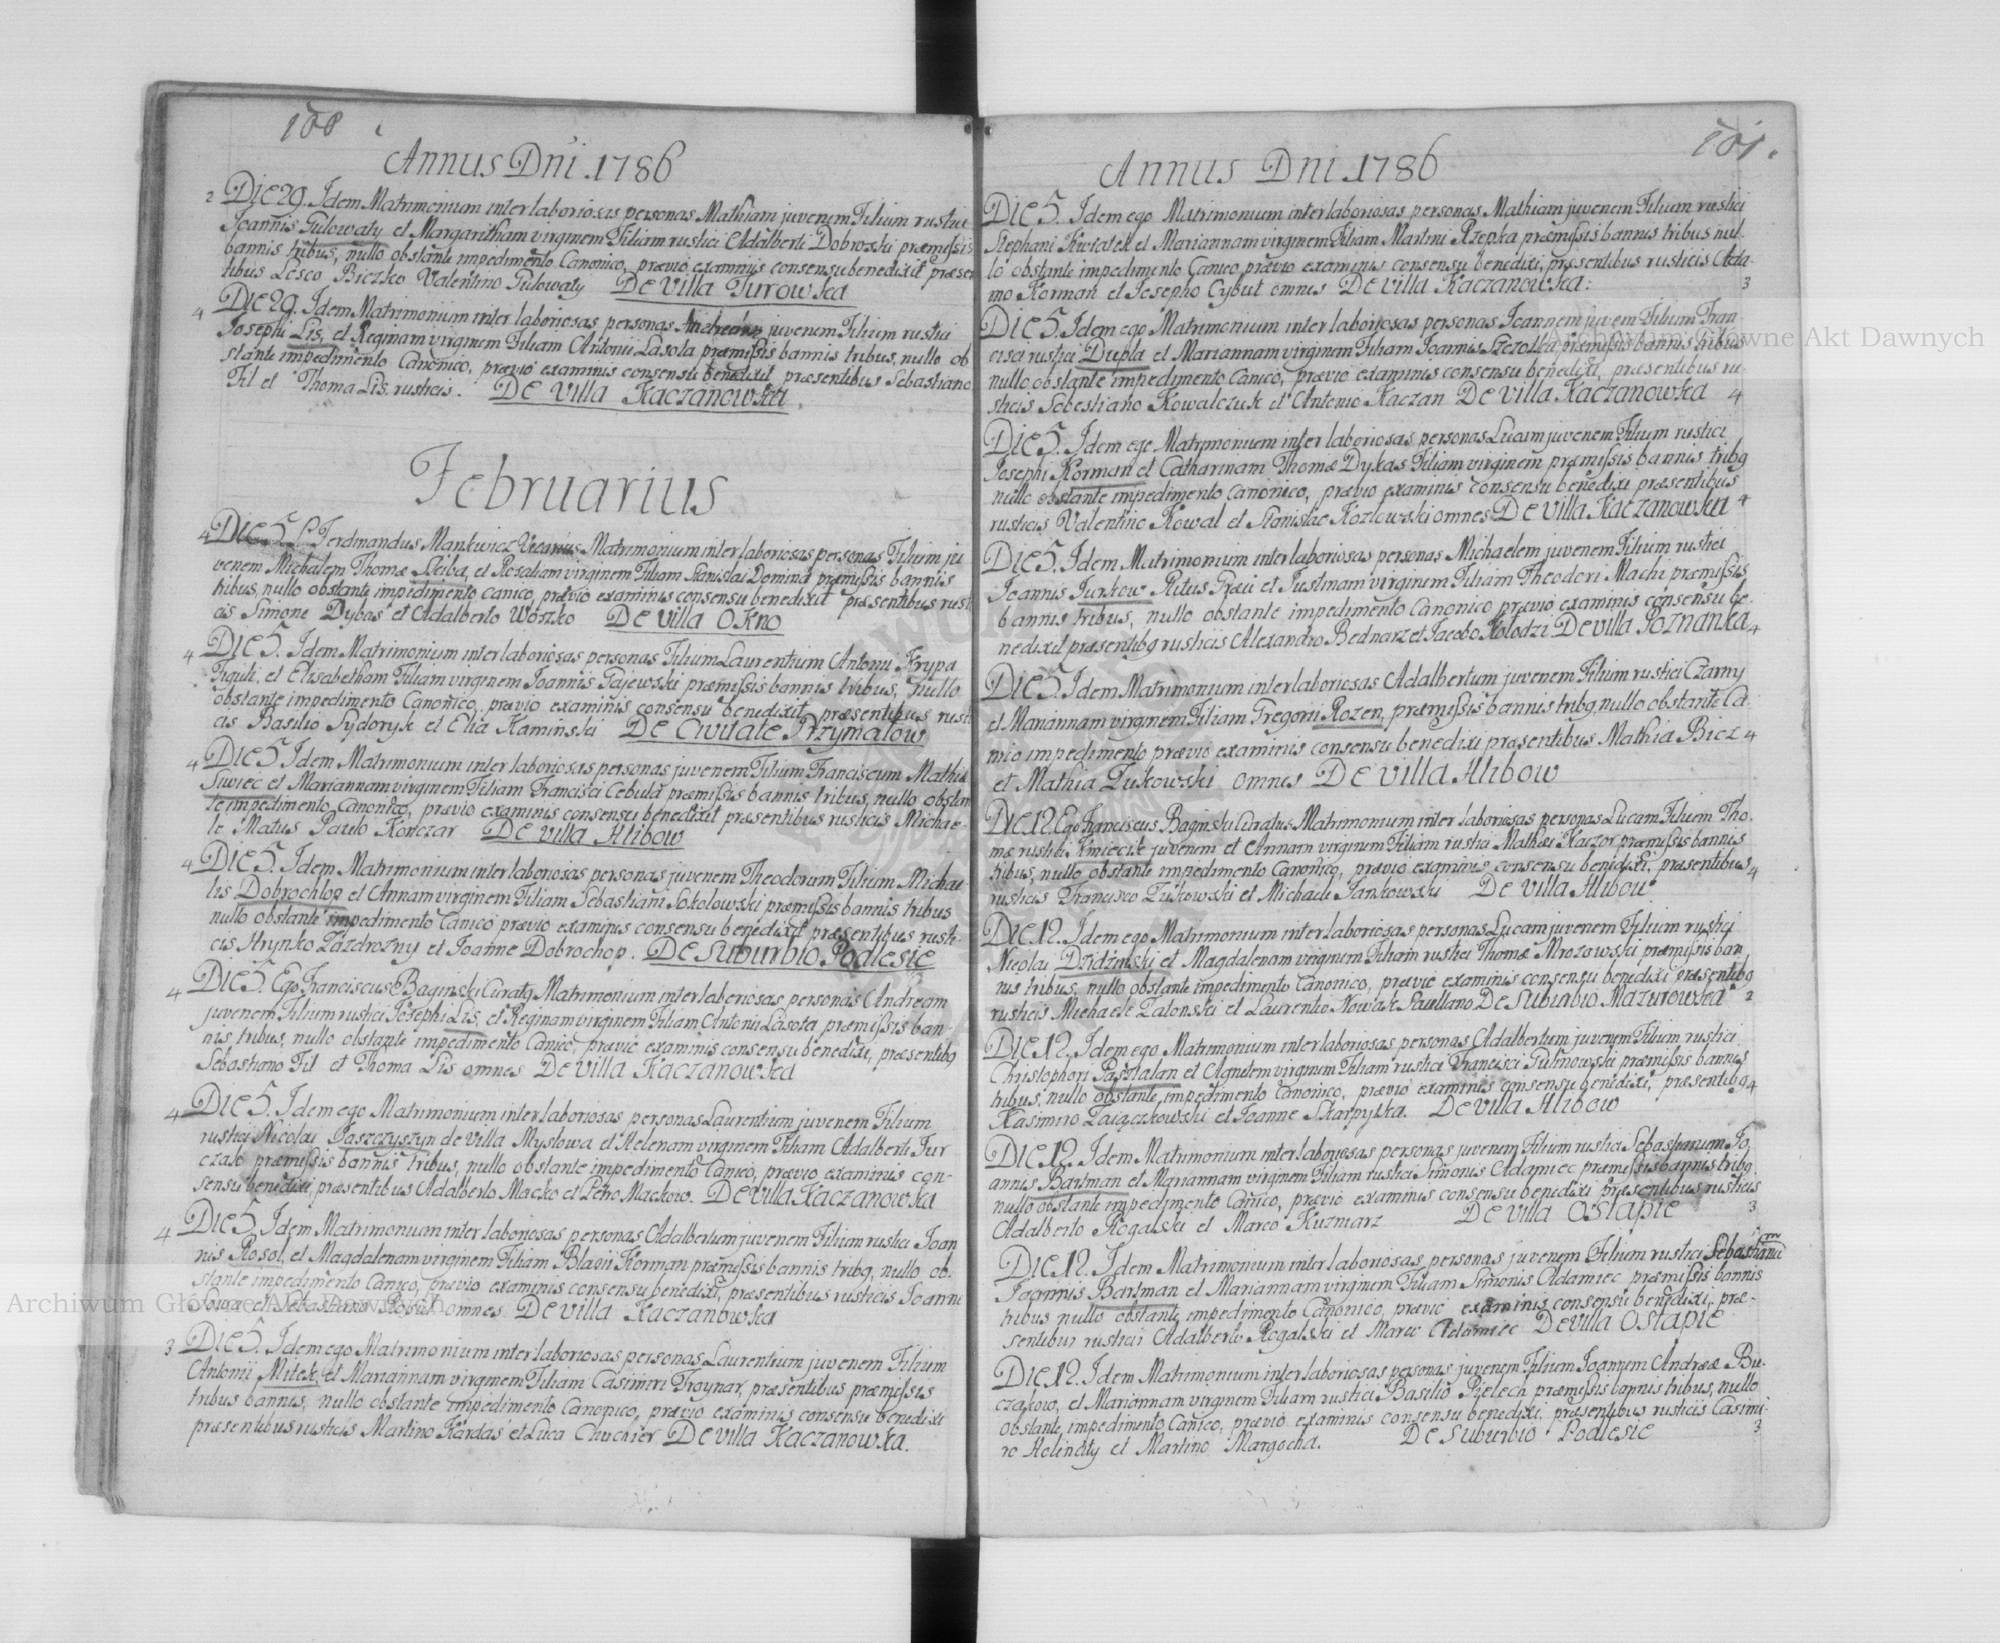 100
Annus Dni 1786
2 Die 29. Idem Matrimonium inter laboriosas personas Mathiam juvenem Filium rustici
Joannis Gulowaty et Margaritham virginem Filiam rustici Adalberti Dobrowski præmissis
bannis tribus, nullo obstante impedimento Canonico, prævio examinis consensu benedixit præsen
tibus Lesco Biczko Valentino Gulowaty De Villa Turowka
4 Die 29. Idem Matrimonium inter laboriosas personas Andream juvenem Filium rustici
Josephi Lis, et Reginam virginem Filiam Antonii Lasota præmissis bannis tribus, nullo ob
stante impedimento Canonico, prævio examinis consensu benedixit præsentibus Sebastiano
Fil et Thoma Lis rusticis. De Villa Kaczanowka
Februarius
4 Die 5. Ferdinandus Mankwicz Vicarius Matrimonium inter laboriosas personas Filium ju
venem Michalem Thomæ Skiba, et Rosaliam virginem Filiam Stanislai Domina præmissis bannis
tribus, nullo obstante impedimento Canico, prævio examinis consensu benedixit præsentibus rusti
cis Simone Dybas et Adalberto Woszko De Villa Okno
4 Die 5. Idem Matrimonium inter laboriosas personas Filium Laurentium Antonii Krypa
Figuli, et Elisabetham Filiam virginem Joannis Gajewski præmissis bannis tribus, nullo
obstante impedimento Canonico, prævio examinis consensu benedixit, præsentibus rusti
cis Basilio Sydoryk et Elia Kaminski De Civitate Grzymalow
4 Die 5 Idem Matrimonium inter laboriosas personas juvenem Filium Franciscum Mathiæ
Suwiec et Mariannam virginem Filiam Francisci Cebula præmissis bannis tribus, nullo obstan
te impedimento Canonico, prævio examinis consensu benedixit præsentibus rusticis Michae-
le Matus Paulo Konczar De Villa Hlibow
4 Die 5. Idem Matrimonium inter laboriosas personas juvenem Theodorum Filium Michae-
lis Dobrochlop et Annam virginem Filiam Sebastiani Sokolowski præmissis bannis tribus
nullo obstante impedimento Canico prævio examinis consensu benedixit præsentibus rusti
cis Hrynko Zazdrozny et Joanne Dobrochop. De Suburbio Podlesie
4 Die 5. Ego Franciscus Baginski Curatg Matrimonium inter laboriosas personas Andream
juvenem Filium rustici Josephi Lis, et Reginam virginem Filiam Antonii Lasota præmissis ban-
nis, tribus, nullo obstante impedimento Canico, prævio examinis consensu benedixi, præsentibg
Sebastiano Fil et Thoma Lis omnes De Villa Kaczanowka
4 Die 5. Idem ego Matrimonium inter laboriosas personas Laurentium juvenem Filium
rustici Nicolai Jaszczyszyn de Villa Myslowa et Helenam virginem Filiam Adalberti Tur
czak præmissis bannis tribus, nullo obstante impedimento Canico, prævio examinis con-
sensu benedixi, præsentibus Adalberto Macko et Petro Mackow. De Villa Kaczanowka
4 Die 5. Idem Matrimonium inter laboriosas personas Adalbertum juvenem Filium rustici Joan
nis Rosol, et Magdalenam virginem Filiam Blasii Korman præmissis bannis tribg, nullo ob-
stante impedimento Canico, prævio examinis consensu benedixi, præsentibus rusticis Joanne
Sowa et Sebastiano omnes De Villa Kaczanowka
3 Die 5. Idem ego Matrimonium inter laboriosas personas Laurentium juvenem Filium
Antonii Mitek, et Mariannam virginem Filiam Casimiri Troynar, præsentibus præmissis
tribus bannis, nullo obstante impedimento Canonico, prævio examinis consensu benedixi
præsentibus rusticis Martino Kardas et Luca Chuchier De Villa Kaczanowka.
101.
Annus Dni 1786
Die 5. Idem ego Matrimonium inter laboriosas personas Mathiam juvenem Filium rustici
Stephani Kwiatek et Mariannam virginem Filiam Martini Rzepka præmissis bannis tribus nul-
lo obstante impedimento Canico prævio examinis consensu benedixi, præsentibus rusticis Ada-
mo Korman et Josepho Cybut omnes De Villa Kaczanowka: 3
Die 5. Idem ego Matrimonium inter laboriosas personas Joannem juvem Filium Fran-
cisci rustici Dupla et Mariannam virginem Filiam Joannis præmissis bannis tribus
nullo obstante impedimento Canico, prævio examinis consensu benedixi, præsentibus ru-
sticis Sebestiano Kowalczuk et Antonio Kaczan De Villa Kaczanowka 4
Die 5. Idem ego Matrimonium inter laboriosas personas Lucam juvenem Filium rustici
Josephi Korman et Catharinam Thomæ Dykas Filiam virginem præmissis bannis tribg
nullo obstante impedimento Canonico, prævio examinis consensu benedixi præsentibus
rusticis Valentino Kowal et Stanislao Kozlowski omnes De Villa Kaczanowka 4
Die 5. Idem Matrimonium inter laboriosas personas Michaelem juvenem Filium rustici
Joannis Jurkow Ritus Græci et Justinam virginem Filiam Theodori Machi præmissis
bannis tribus, nullo obstante impedimento Canonico prævio examinis consensu be-
nedixit præsentibg rusticis Alexandro Bednarz et Jacobo Kolodzi De Villa Poznanka 4
Die 5. Idem Matrimonium inter laboriosas Adalbertum juvenem Filium rustici Czarny
et Mariannam virginem Filiam Gregorii Rozen, præmissis bannis tribg, nullo obstante Ca-
nnio impedimento prævio examinis consensu benedixi præsentibus Mathia Bicz 4
et Mathia Zukowski omnes De Villa Hlibow
Die 12. Ego Franciscus Baginski Curatus Matrimonium inter laboriosas personas Lucam Filium Tho-
mæ rustici Kmiecik juvenem et Annam virginem Filiam rustici Mathæi Kaczor præmissis bannis
tribus, nullo obstante impedimento Canonico, prævio examinis consensu benedixi, præsentibus 4
rusticis Francisco Zukowski et Michaele Jankowski De Villa Hlibow.
Die 12. Idem ego Matrimonium inter laboriosas personas Lucam juvenem Filium rustici
Nicolai Dzidzinski et Magdalenam virginem Filiam rustici Thomæ Mrozowski præmissis ban
nis tribus, nullo obstante impedimento Canonico, prævio examinis consensu benedixi præsentibg
rusticis Michaele Zatonski et Laurentio Nowak De Suburbio Mazurowka 2
Die 12. Idem ego Matrimonium inter laboriosas personas Adalbertum juvenem Filium rustici
Christophori Pasztalan et Agnetem virginem Filiam rustici Francisci Gulinowski præmissis bannis
tribus, nullo obstante impedimento Canonico, prævio examinis consensu benedixi, præsentibg 4
Kasimiro Zaiączkowski et Joanne Skarpytka. De Villa Hlibow
Die 12. Idem Matrimonium inter laboriosas personas juvenem Filium rustici Sebastianum Jo
annis Bartman et Mariannam virginem Filiam rustici Simonis Adamiec præmissis bannis tribg,
nullo obstante impedimento Canico, prævio examinis consensu benedixi præsentibus rusticis
Adalberto Rogalski et Marco Kuzniarz De Villa Ostapie 3
Die 12. Idem Matrimonium inter laboriosas personas juvenem Filium rustici Sebastianum
Joannis Bartman et Mariannam virginem Filiam Simonis Adamiec præmissis bannis
tribus nullo obstante impedimento Canonico, prævio examinis consensu benedixi, præ-
sentibus rusticis Adalberto Rogalski et Marco Adamiec De Villa Ostapie
Die 12. Idem Matrimonium inter laboriosas personas juvenem Filium Joannem Andreæ Bu-
czakow, et Mariannam virginem Filiam rustici Basilio Pielech præmissis bannis tribus, nullo
obstante impedimento Canico, prævio examinis consensu benedixi, præsentibus rusticis Casimi-
ro Holinaty et Martino Margocha. De Suburbio Podlesie 3
Archiwum Główne Akt Dawnych
Archiwum Główne Akt Dawnych